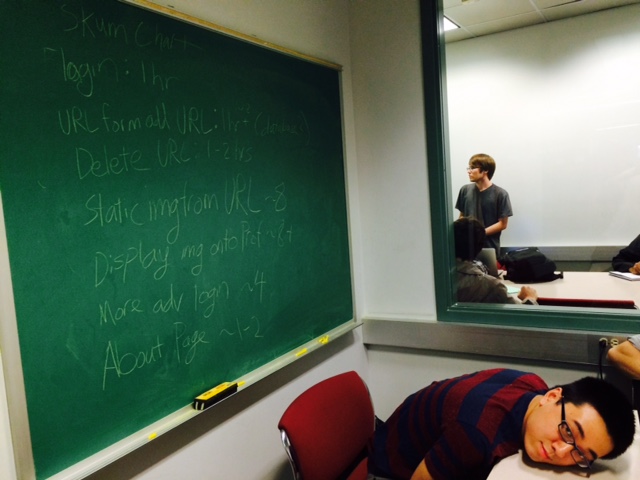 Skum Chart
login: 1hr
URL form add URL: 1hr+ (database)
Delete URL: 1-2hrs
Static img from URL ~8
Display img onto Plot ~8+
More adv login ~4
About Page ~1-2